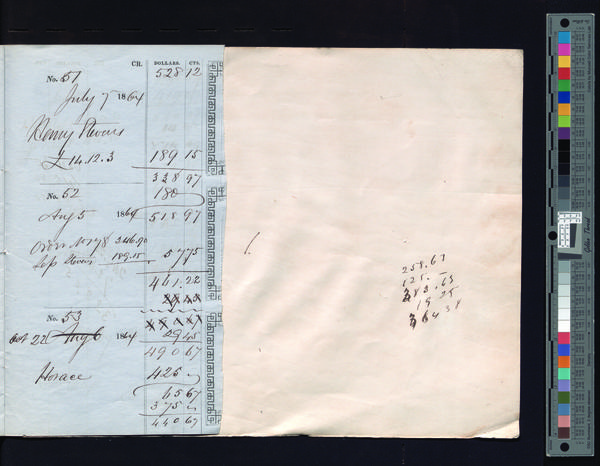 CR. DOLLARS. CTS.
No. 51 528 12
July 7 1864
Henry Stevens
£14.12.3 189 15
338 97
No. 52 180
Aug 5 1864 518 97
246.90
Less Stevens 189.15 57 75
461.22
No. 53
Oct 22 Aug 6 1864 29 45
490 67
Horace 425
65 67
375
440 67
258.67
125.
383.63
19 25
364 38